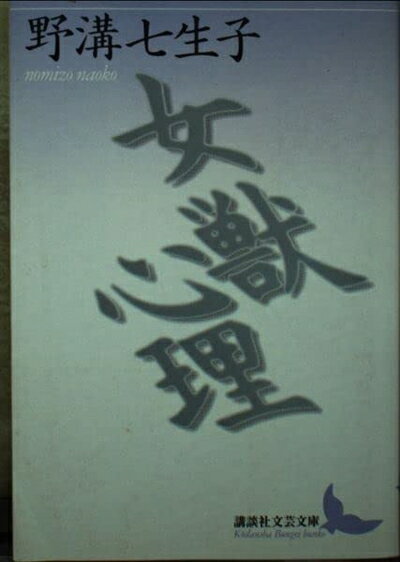 野溝七生子
nomizo naoko
女獣心理
講談社文芸文庫
Kodansha Bungei bunko